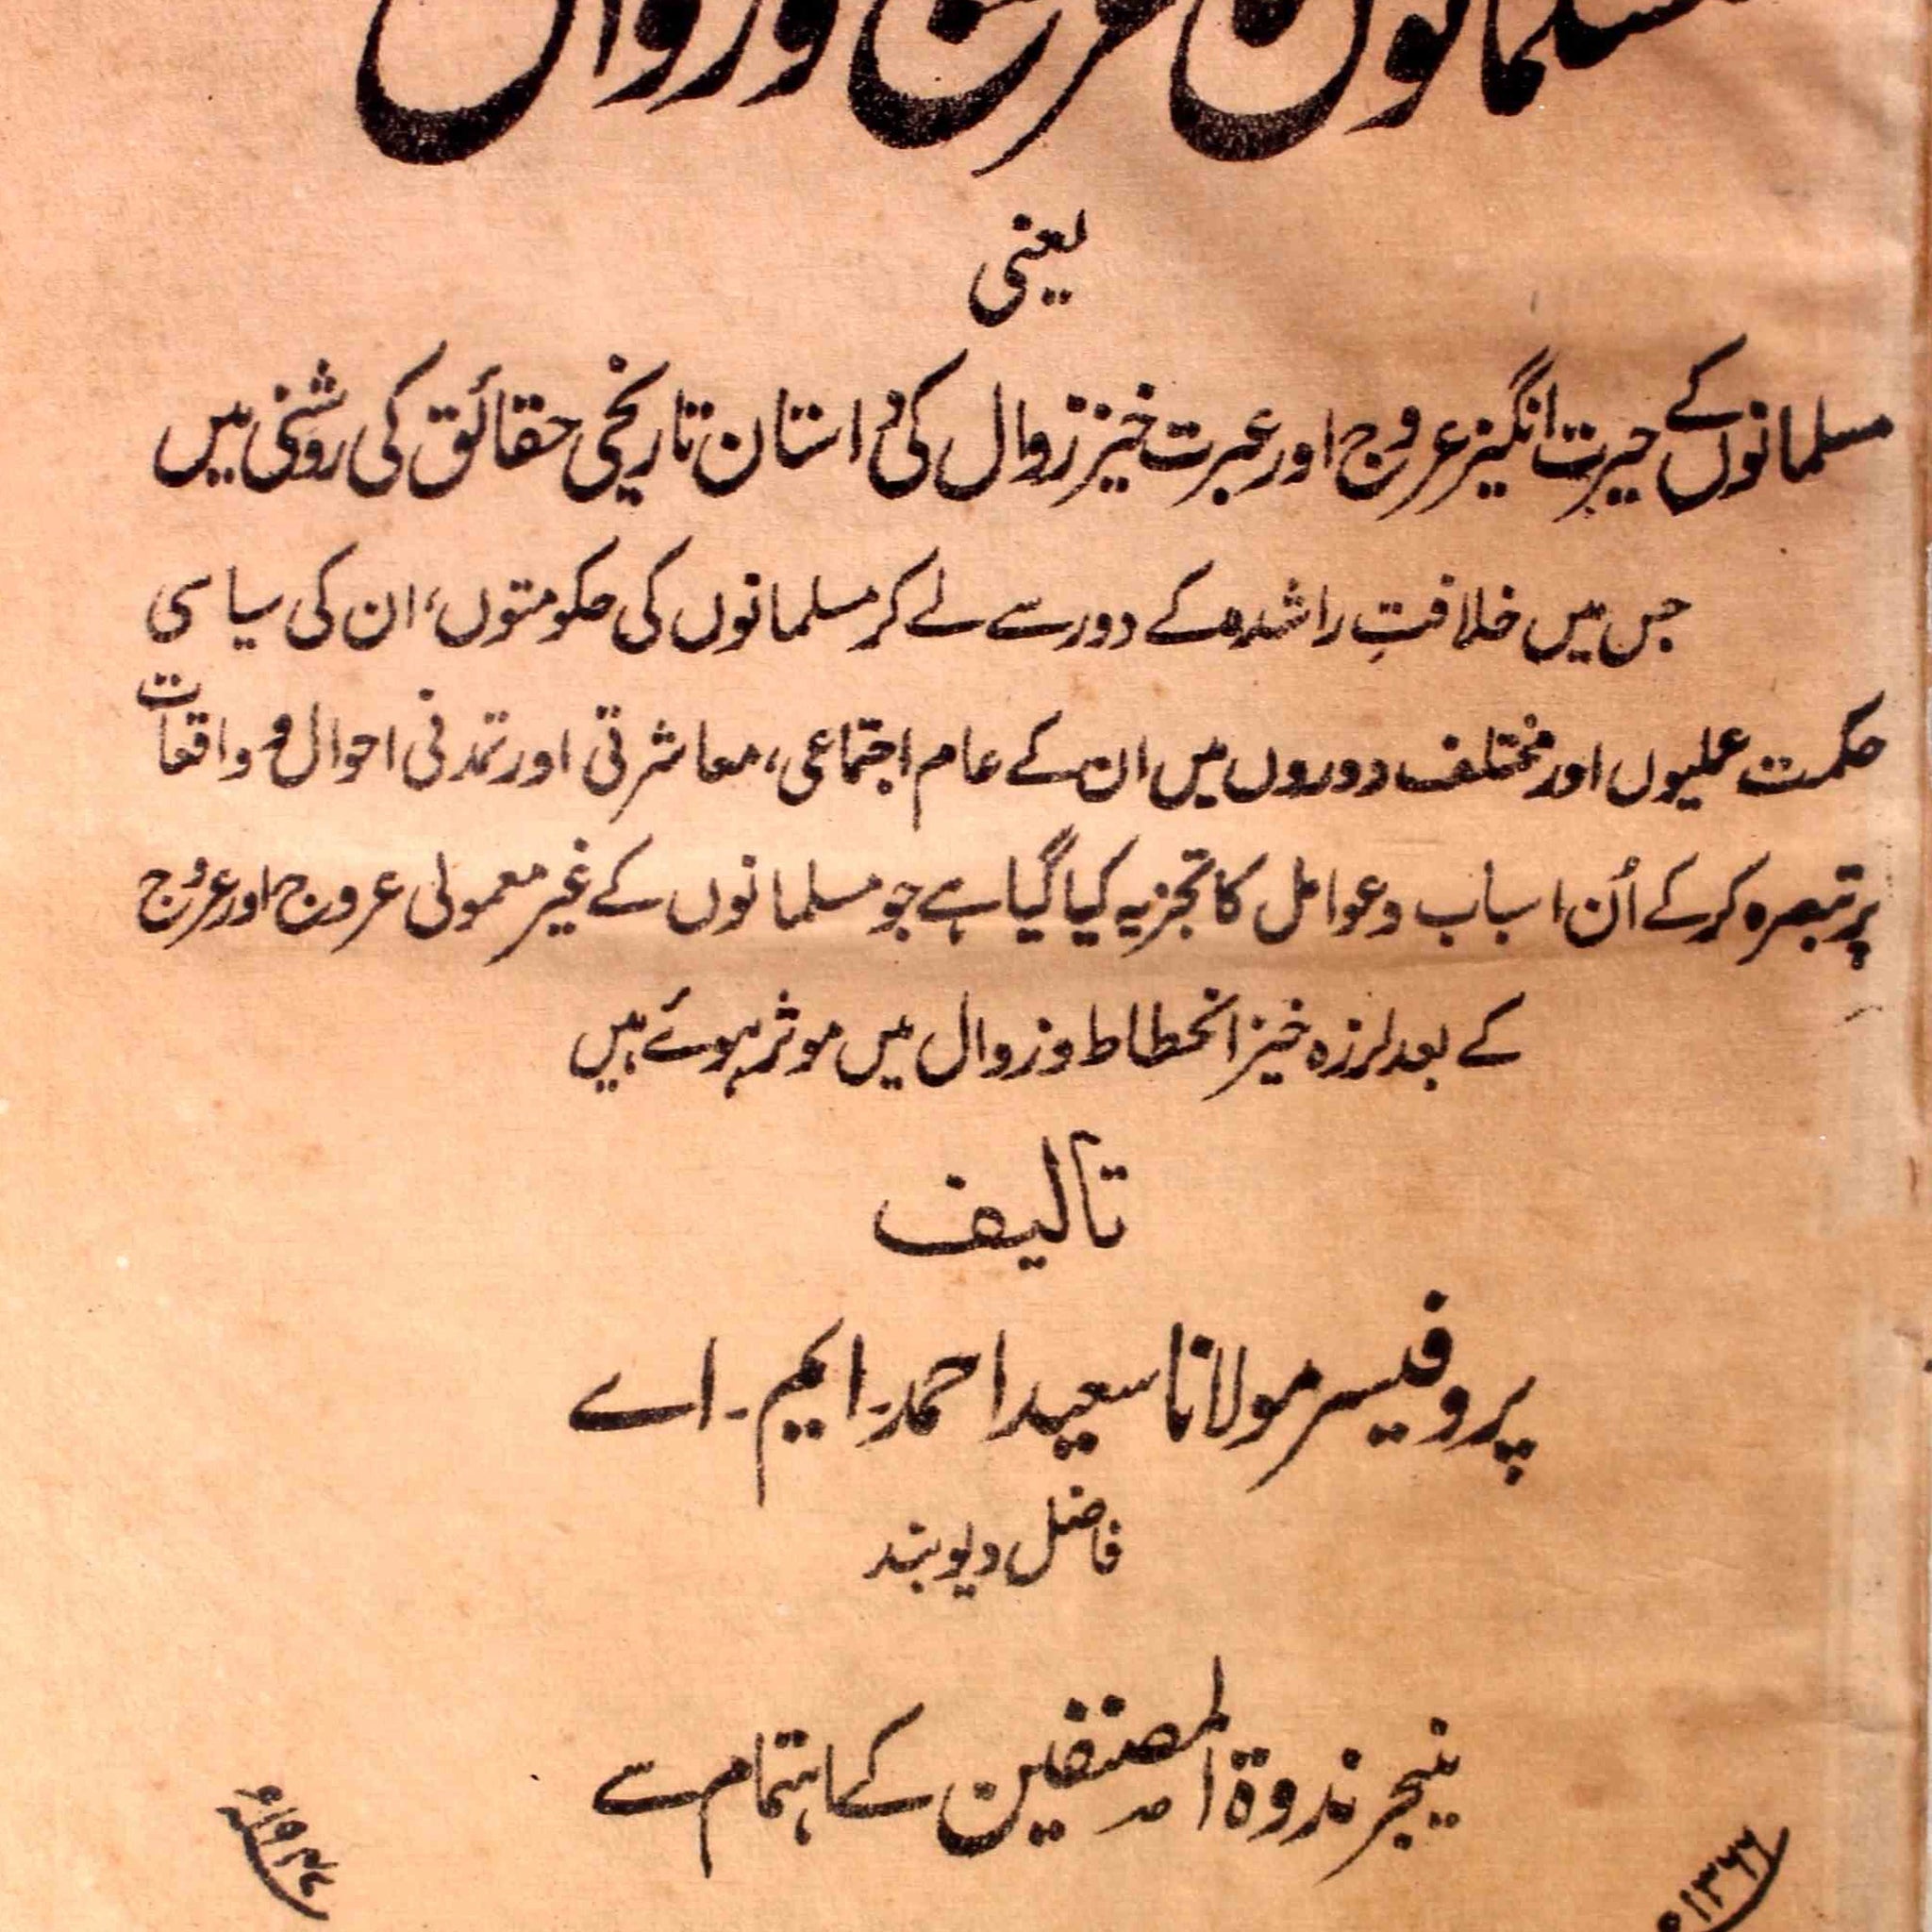 مسلمانوں عروج و زوال
یعنی
مسلمانوں کے حیرت انگیز عروج اور عبرت خیز زوال کی داستان تاریخی حقائق کی روشنی میں
جس میں خلافتِ راشدہ کے دور سے لے کر مسلمانوں کی حکومتوں، ان کی سیاسی
حکمت عملیوں اور مختلف دوروں میں ان کے عام اجتماعی، معاشرتی اور تمدنی احوال و واقعات
پر تبصرہ کر کے اُن اسباب و عوامل کا تجزیہ کیا گیا ہے جو مسلمانوں کے غیر معمولی عروج اور عروج
کے بعد لرزہ خیز انحطاط و زوال میں موثر ہوئے ہیں
تالیف
پروفیسر مولانا سعید احمد۔ ایم۔ اے
فاضل دیوبند
منیجر ندوۃ المصنفین کے اہتمام سے
۱۳۶۶ھ
۱۹۴۷ء